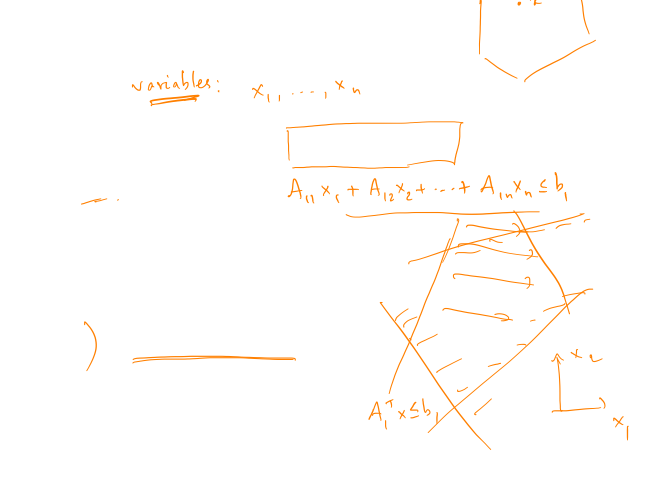 variables: x₁, ..., xₙ
A₁₁x₁ + A₁₂x₂ + ... + A₁ₙxₙ ≤ b₁
x₂
A₁ᵀx ≤ b₁
x₁